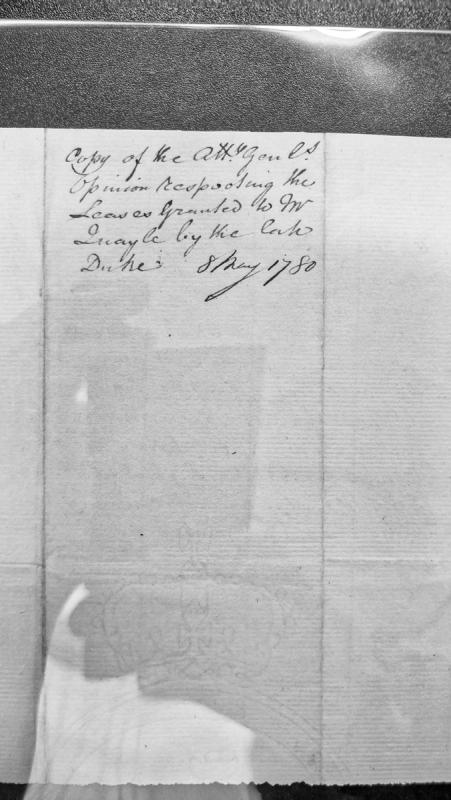 Copy of the Atty. Genl.s
Opinion respecting the
Leases Granted to Mr
Quayle by the late
Duke 8 May 1780